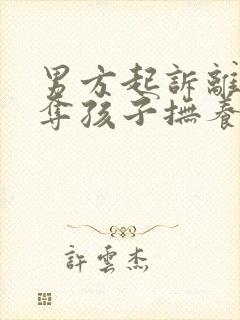 男方起訴離
奪孩子撫養
許雲杰